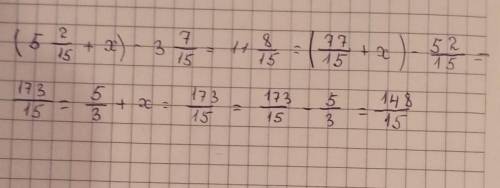 (5 2/15 + x) - 3 7/15 = 11 8/15 = (77/15 + x) - 52/15 =
173/15 = 5/3 + x = 173/15 = 173/15 - 5/3 = 148/15